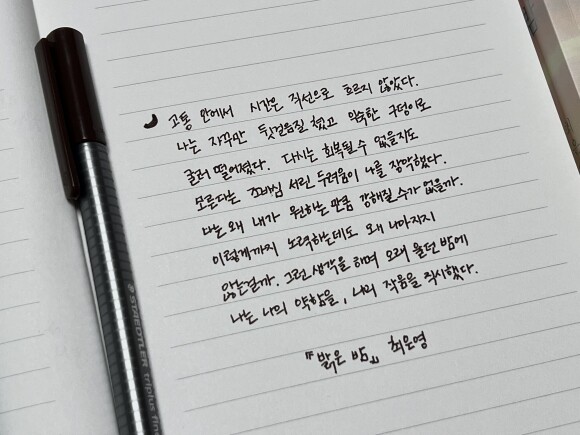 고통 안에서 시간은 직선으로 흐르지 않았다.
나는 자꾸만 뒷걸음질 쳤고 익숙한 구덩이로
굴러 떨어졌다. 다시는 회복될 수 없을지도
모른다는 조바심 서린 두려움이 나를 장악했다.
나는 왜 내가 원하는 만큼 강해질 수가 없을까.
이렇게까지 노력하는데도 왜 나아지지
않는걸까. 그런 생각을 하며 오래 울던 밤에
나는 나의 약함을, 나의 작음을 직시했다.
『밝은 밤』 최은영
STAEDTLER triplus fine